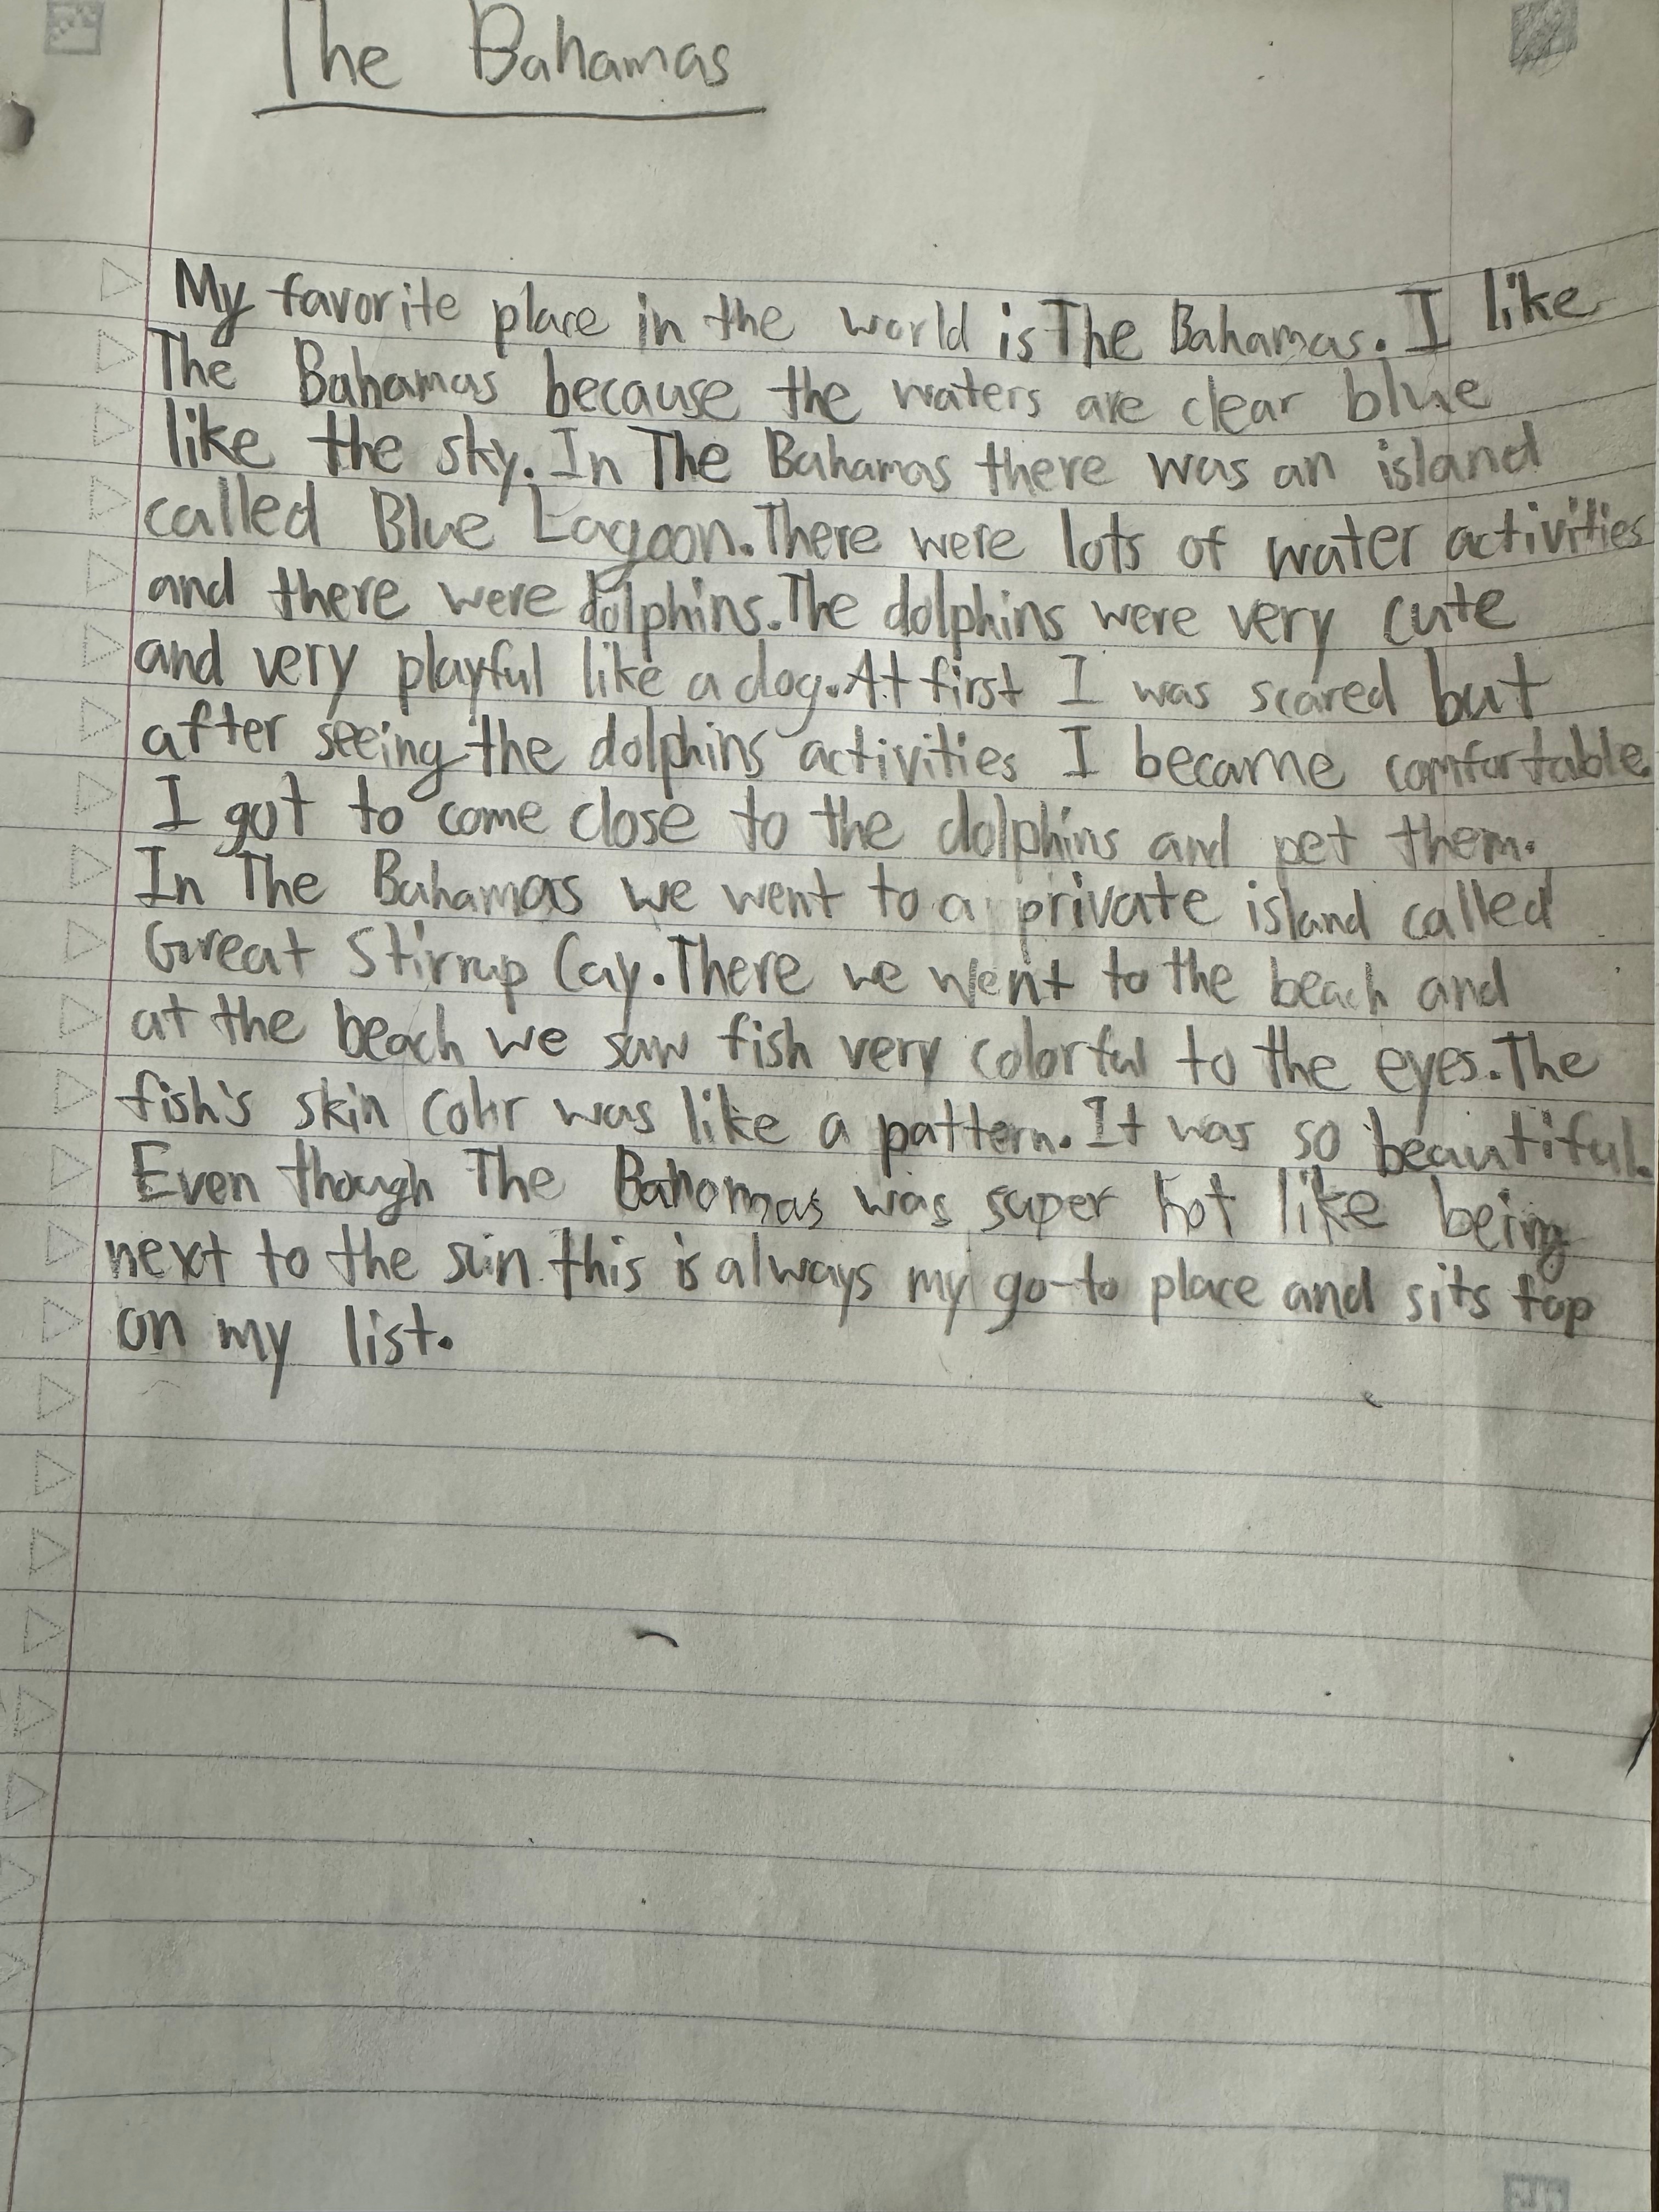 The Bahamas
My favorite place in the world is The Bahamas. I like
The Bahamas because the waters are clear blue
like the sky. In The Bahamas there was an island
called Blue Lagoon. There were lots of water activities
and there were dolphins. The dolphins were very cute
and very playful like a dog. At first I was scared but
after seeing the dolphins activities I became comfortable.
I got to come close to the dolphins and pet them.
In The Bahamas we went to a private island called
Great Stirrup Cay. There we went to the beach and
at the beach we saw fish very colorful to the eyes. The
fish's skin color was like a pattern. It was so beautiful.
Even though The Bahamas was super hot like being
next to the sun this is always my go-to place and sits top
on my list.